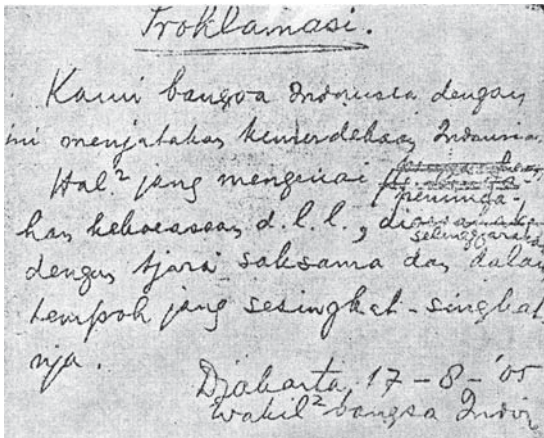 Proklamasi.
Kami bangsa Indonesia dengan
ini menjatakan kemerdekaan Indonesia.
Hal² jang mengenai peminda-
han kekoeasaan d.l.l., diselenggarakan
dengan tjara saksama dan dalam
tempoh jang sesingkat-singkat-
nja.
Djakarta, 17 - 8 - '05
Wakil² bangsa